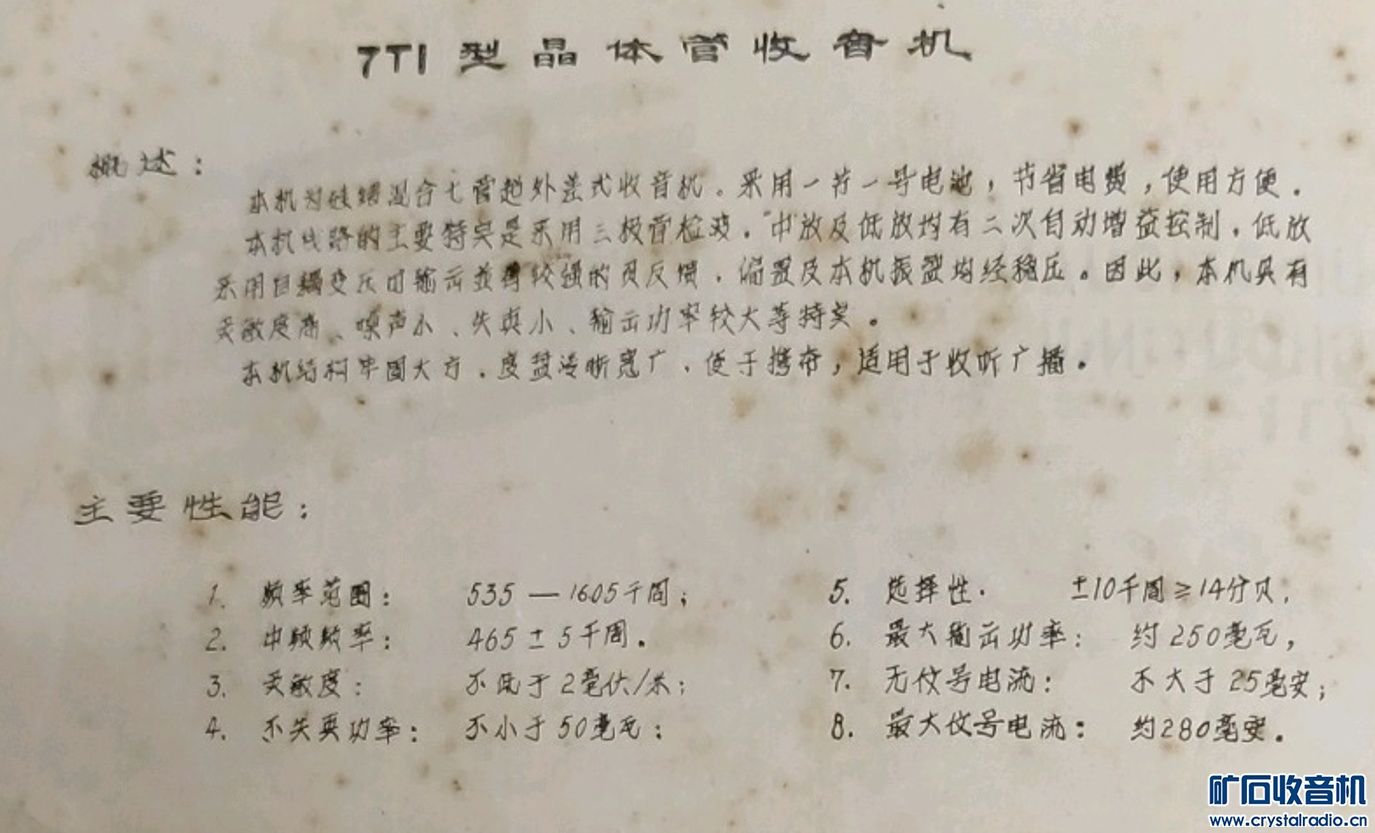 7T1 型晶体管收音机
概述：
本机为硅锗混合七管超外差式收音机。采用一节一号电池，节省电费，使用方便。
本机线路的主要特点是采用三极管检波，中放及低放均有二次自动增益控制，低放
采用自耦变压器输出并有较强的负反馈，偏置及本机振荡均经稳压。因此，本机具有
灵敏度高、噪声小、失真小、输出功率较大等特点。
本机结构牢固大方，度盘清晰宽广，便于携带，适用于收听广播。
主要性能：
1. 频率范围： 535 — 1605千周；
2. 中频频率： 465 ± 5千周。
3. 灵敏度： 不低于2毫伏/米；
4. 不失真功率： 不小于50毫瓦；
5. 选择性. ±10千周≥14分贝；
6. 最大输出功率： 约250毫瓦，
7. 无信号电流： 不大于25毫安；
8. 最大信号电流： 约280毫安。
矿石收音机
www.crystalradio.cn